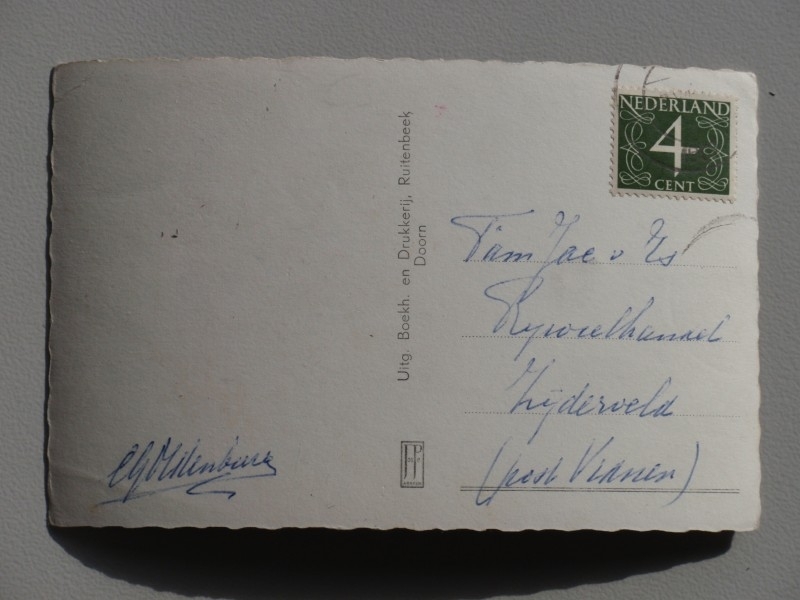 NEDERLAND
4
CENT
Uitg. Boekh. en Drukkerij, Ruitenbeek
Doorn
Fam
Rijwielhandel
Zijderveld
(post Vianen)